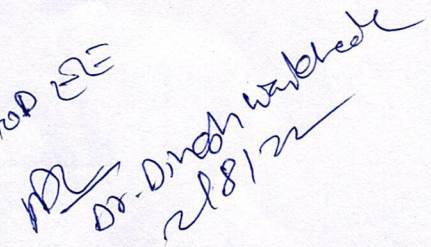 OD EE
Dr. Dinesh Warkhede
2/8/22